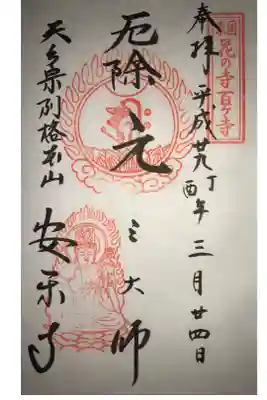 奉拝 平成廿九丁酉年 三月廿四日
花の寺百ヶ寺
厄除 元三大師
天台宗別格本山 安楽寺